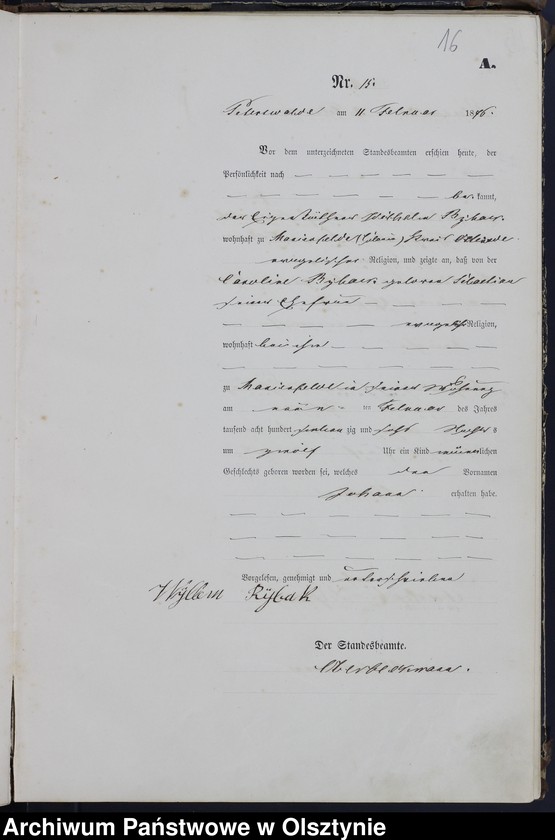 16
A.
Nr. 15.
Peterswalde am 11 Februar 1876.
Vor dem unterzeichneten Standesbeamten erschien heute, der
Persönlichkeit nach — — — — —
— — — — — be kannt,
der Eigenkäthner Wilhelm Rybak
wohnhaft zu Marienfelde Kreis Osterode
evangelischer Religion, und zeigte an, daß von der
Caroline Rybak geboren
seiner Ehefrau — — —
— — — — evangelisch Religion,
wohnhaft bei ihm — — —
— — — — — — —
zu Marienfelde in seiner Wohnung
am neun ten Februar des Jahres
tausend acht hundert sieben zig und sechs Nachts
um zwölf Uhr ein Kind männlichen
Geschlechts geboren worden sei, welches den Vornamen
Johann erhalten habe.
— — — — — —
— — — — — —
— — — — — —
Vorgelesen, genehmigt und unterschrieben
Wyllem Rÿbak
Der Standesbeamte.
Archiwum Państwowe w Olsztynie